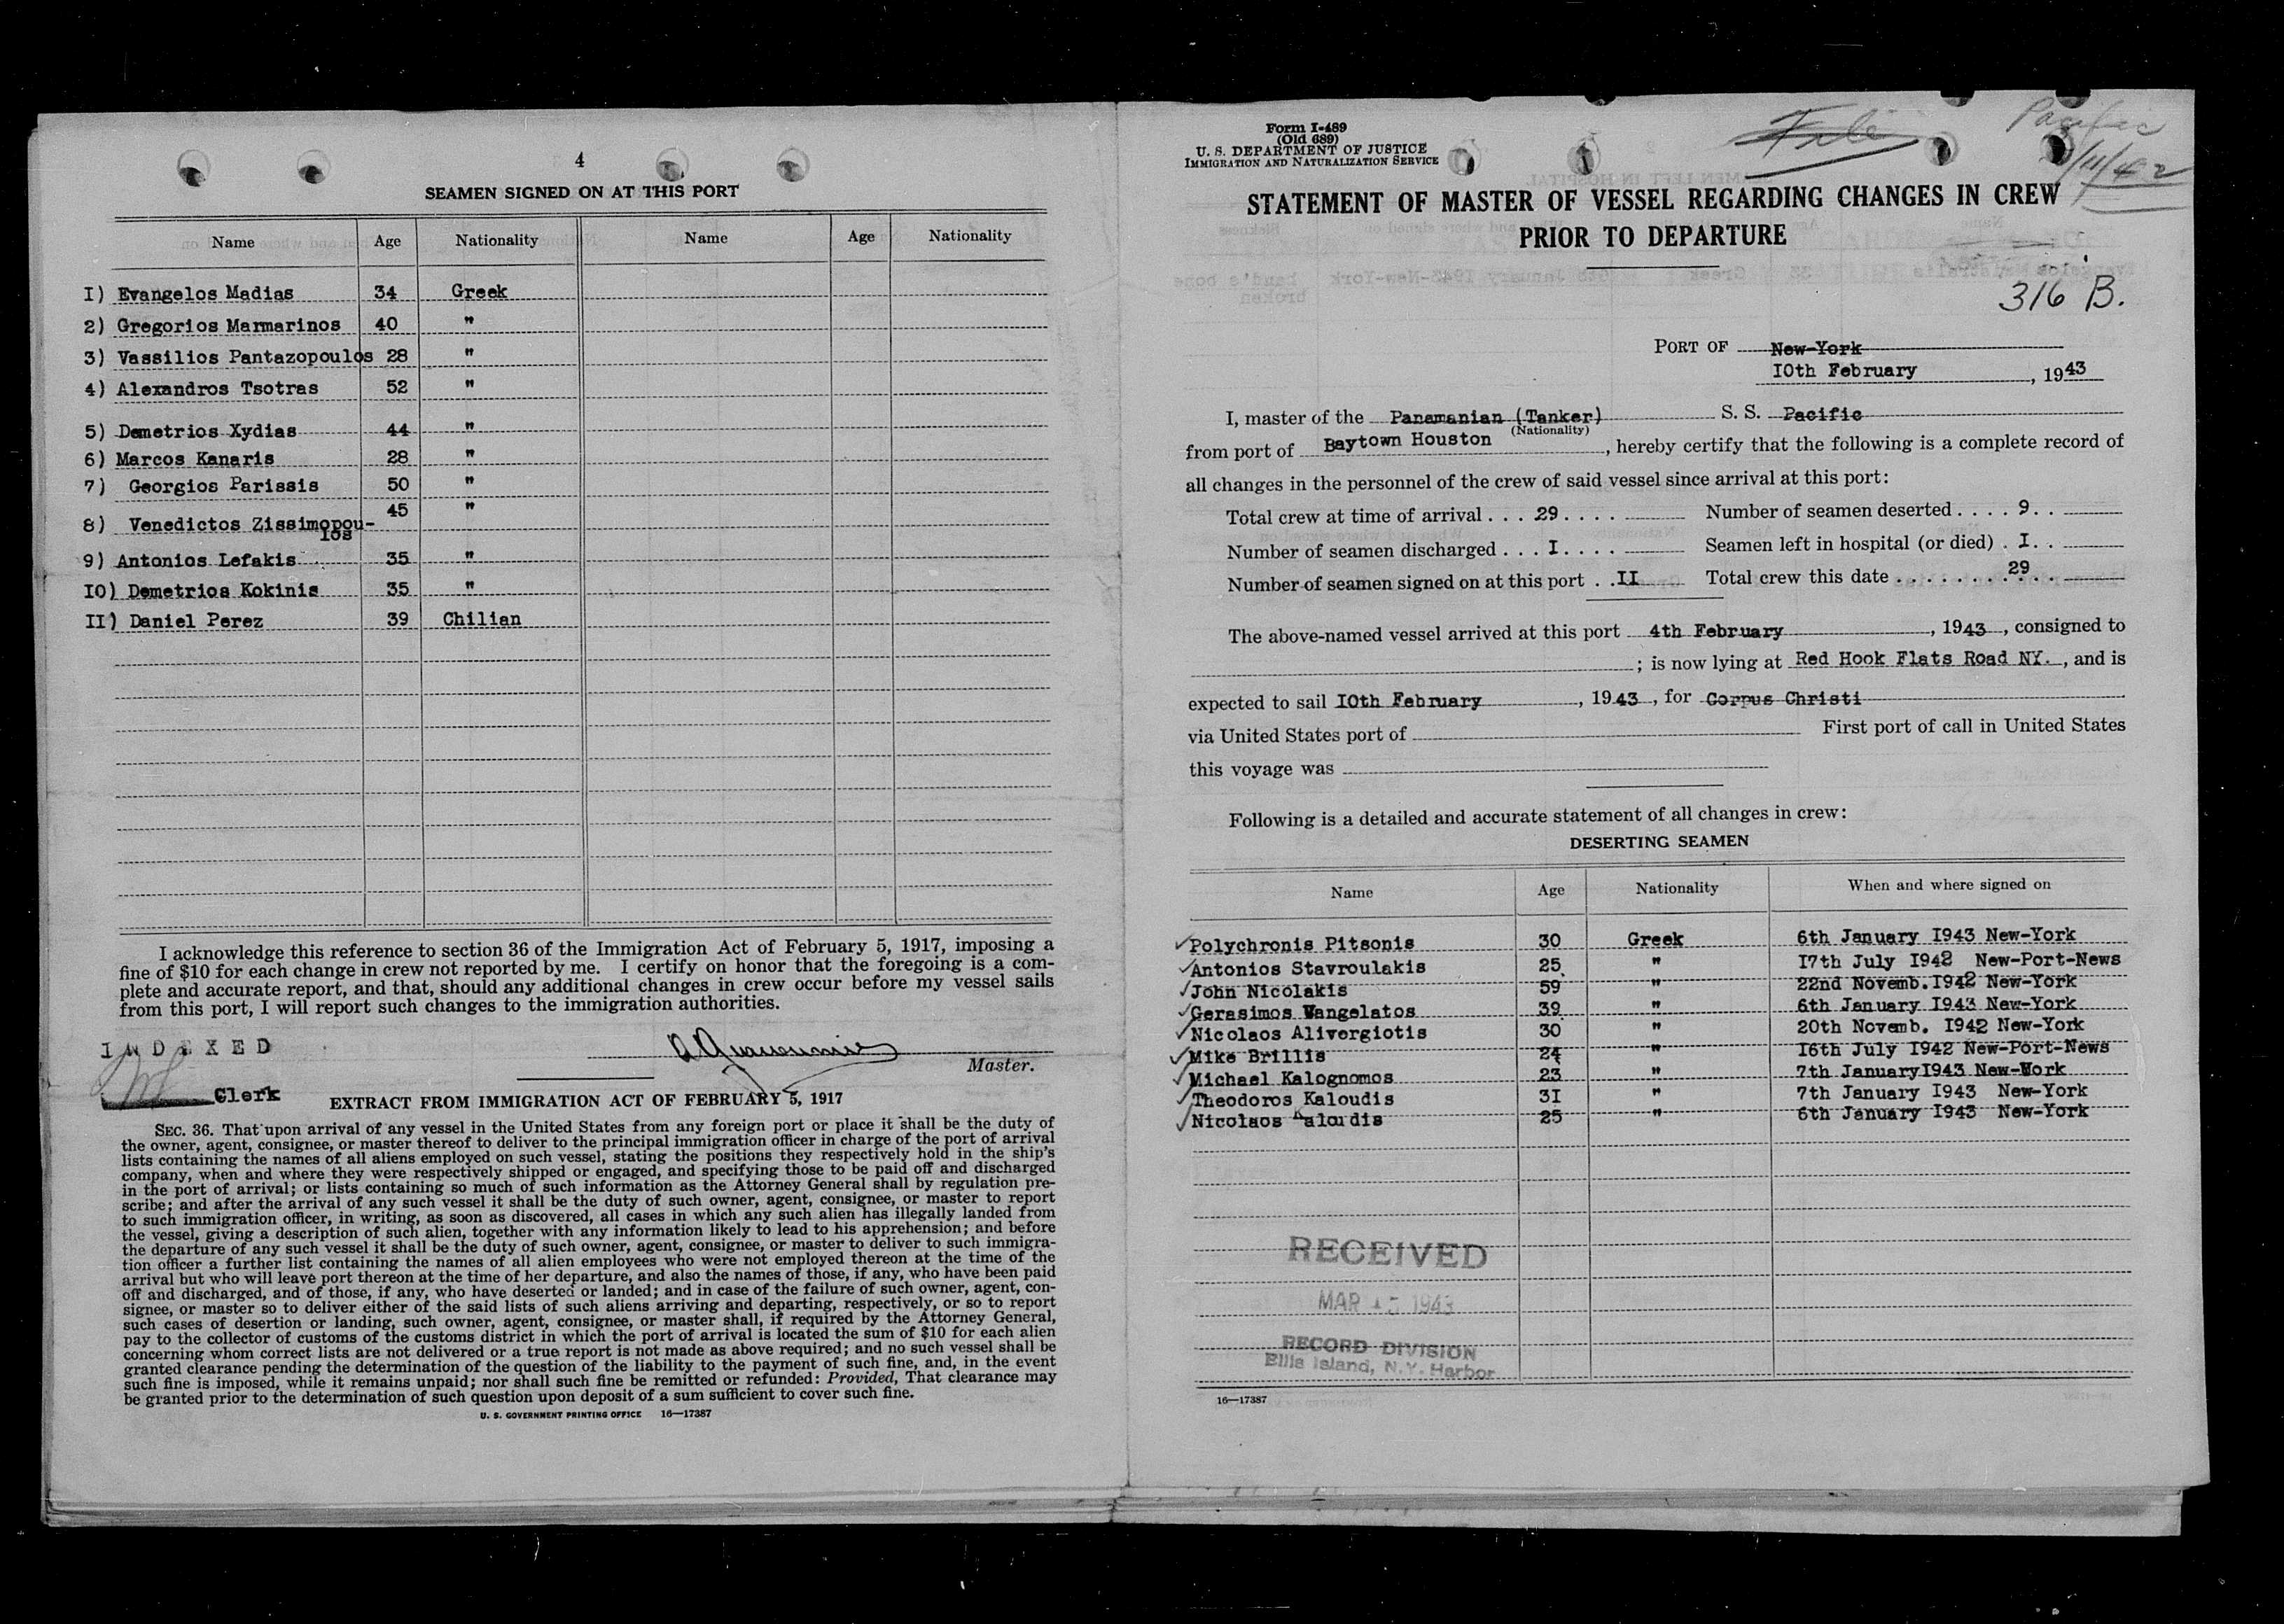 4
SEAMEN SIGNED ON AT THIS PORT
Name Age Nationality Name Age Nationality
I) Evangelos Madias 34 Greek
2) Gregorios Marmarinos 40 "
3) Vassilios Pantazopoulos 28 "
4) Alexandros Tsotras 52 "
5) Demetrios Xydias 44 "
6) Marcos Kanaris 28 "
7) Georgios Parissis 50 "
8) Venedictos Zissimopou- 45 "
los
9) Antonios Lefakis 35 "
IO) Demetrios Kokinis 35 "
II) Daniel Perez 39 Chilian
I acknowledge this reference to section 36 of the Immigration Act of February 5, 1917, imposing a
fine of $10 for each change in crew not reported by me. I certify on honor that the foregoing is a com-
plete and accurate report, and that, should any additional changes in crew occur before my vessel sails
from this port, I will report such changes to the immigration authorities.
INDEXED
Master.
Clerk
EXTRACT FROM IMMIGRATION ACT OF FEBRUARY 5, 1917
SEC. 36. That upon arrival of any vessel in the United States from any foreign port or place it shall be the duty of
the owner, agent, consignee, or master thereof to deliver to the principal immigration officer in charge of the port of arrival
lists containing the names of all aliens employed on such vessel, stating the positions they respectively hold in the ship's
company, when and where they were respectively shipped or engaged, and specifying those to be paid off and discharged
in the port of arrival; or lists containing so much of such information as the Attorney General shall by regulation pre-
scribe; and after the arrival of any such vessel it shall be the duty of such owner, agent, consignee, or master to report
to such immigration officer, in writing, as soon as discovered, all cases in which any such alien has illegally landed from
the vessel, giving a description of such alien, together with any information likely to lead to his apprehension; and before
the departure of any such vessel it shall be the duty of such owner, agent, consignee, or master to deliver to such immigra-
tion officer a further list containing the names of all alien employees who were not employed thereon at the time of the
arrival but who will leave port thereon at the time of her departure, and also the names of those, if any, who have been paid
off and discharged, and of those, if any, who have deserted or landed; and in case of the failure of such owner, agent, con-
signee, or master so to deliver either of the said lists of such aliens arriving and departing, respectively, or so to report
such cases of desertion or landing, such owner, agent, consignee, or master shall, if required by the Attorney General,
pay to the collector of customs of the customs district in which the port of arrival is located the sum of $10 for each alien
concerning whom correct lists are not delivered or a true report is not made as above required; and no such vessel shall be
granted clearance pending the determination of the question of the liability to the payment of such fine, and, in the event
such fine is imposed, while it remains unpaid; nor shall such fine be remitted or refunded: Provided, That clearance may
be granted prior to the determination of such question upon deposit of a sum sufficient to cover such fine.
U. S. GOVERNMENT PRINTING OFFICE 16—17387
Form I-489
(Old 689)
U. S. DEPARTMENT OF JUSTICE
IMMIGRATION AND NATURALIZATION SERVICE
File
Pacific
STATEMENT OF MASTER OF VESSEL REGARDING CHANGES IN CREW
PRIOR TO DEPARTURE
316 B.
PORT OF New-York
IOth February, 1943
I, master of the Panamanian (Tanker) S. S. Pacific
(Nationality)
from port of Baytown Houston, hereby certify that the following is a complete record of
all changes in the personnel of the crew of said vessel since arrival at this port:
Total crew at time of arrival . . . 29 . . . . Number of seamen deserted . . . . 9 . .
Number of seamen discharged . . . I . . . . Seamen left in hospital (or died) . I . .
Number of seamen signed on at this port . . II Total crew this date . . . . . . . . 29 . .
The above-named vessel arrived at this port 4th February, 1943, consigned to
; is now lying at Red Hook Flats Road NY., and is
expected to sail IOth February, 1943, for Corpus Christi
via United States port of First port of call in United States
this voyage was
Following is a detailed and accurate statement of all changes in crew:
DESERTING SEAMEN
Name Age Nationality When and where signed on
✓Polychronis Pitsonis 30 Greek 6th January I943 New-York
✓Antonios Stavroulakis 25 " I7th July I942 New-Port-News
✓John Nicolakis 59 " 22nd Novemb. I942 New-York
✓Gerasimos Vangelatos 39 " 6th January I943 New-York
✓Nicolaos Alivergiotis 30 " 20th Novemb. I942 New-York
✓Mike Brillis 24 " I6th July I942 New-Port-News
✓Michael Kalognomos 23 " 7th JanuaryI943 New-Work
✓Theodoros Kaloudis 3I " 7th January I943 New-York
✓Nicolaos Kaloudis 25 " 6th January I943 New-York
RECEIVED
MAR 1943
RECORD DIVISION
Ellis Island, N.Y. Harbor
16—17387